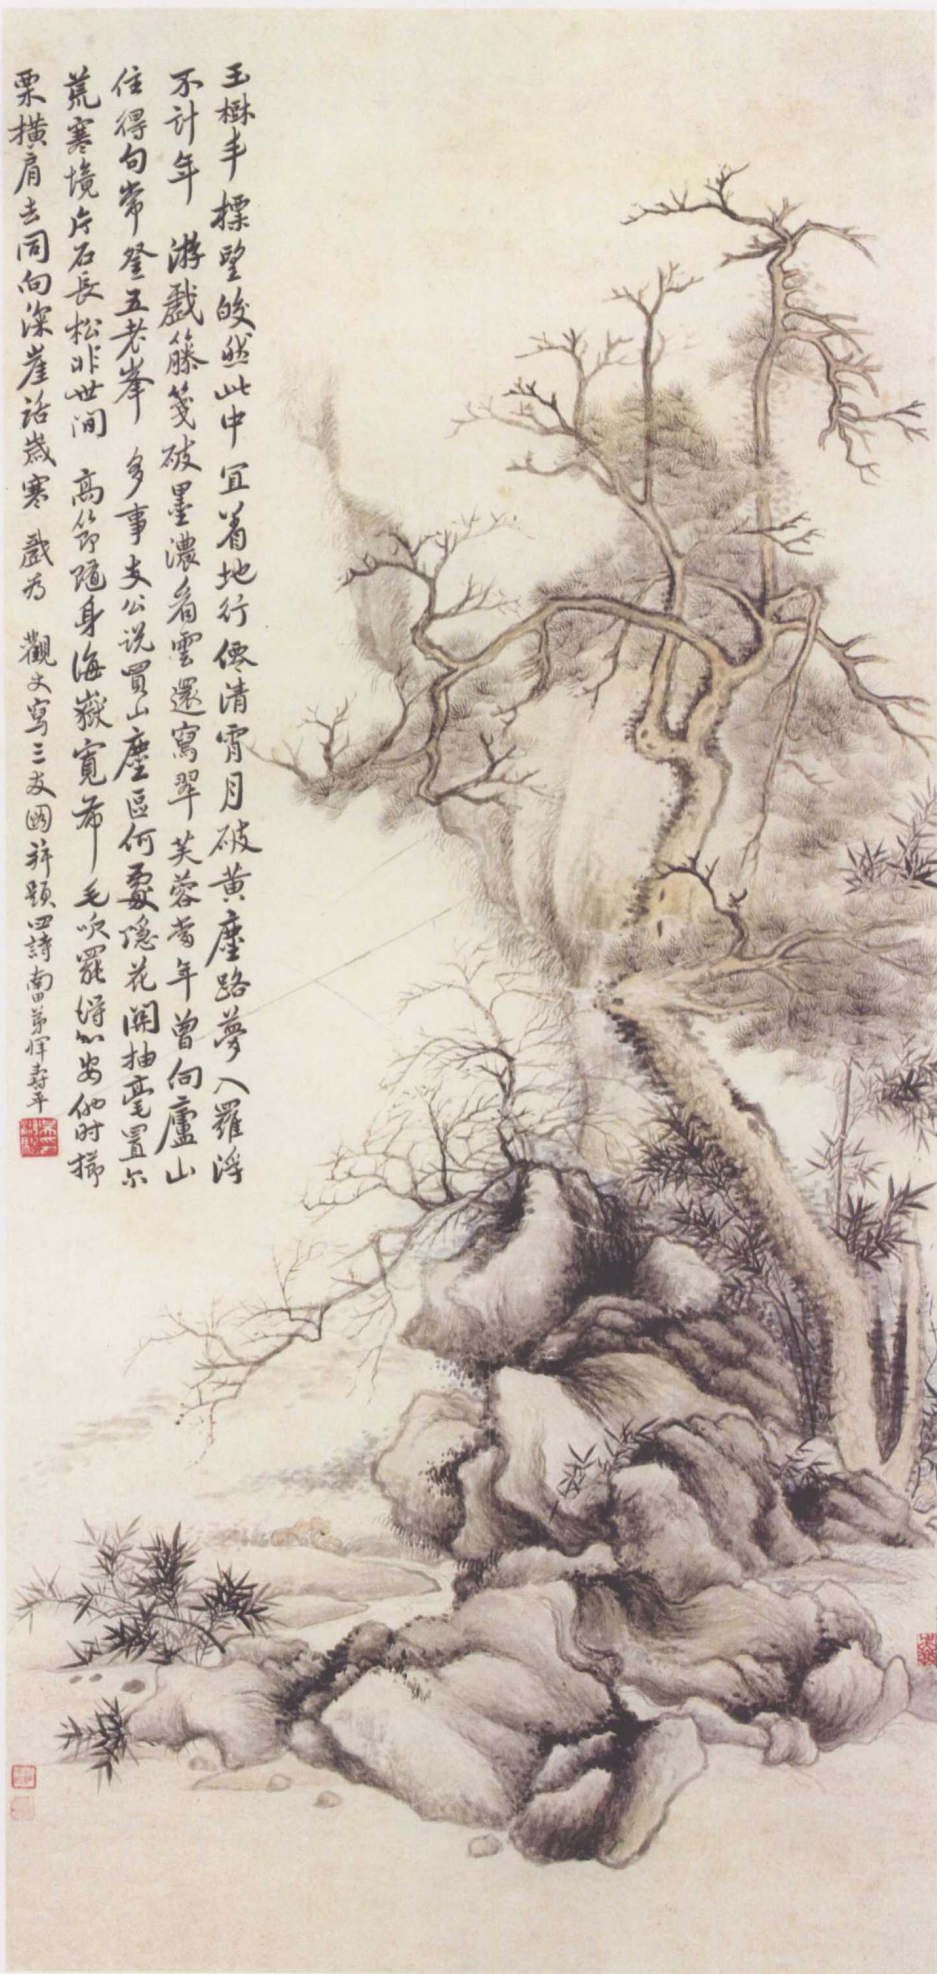 玉樹丰標望皎然此中宜着地行僊清宵月破黄塵路夢入羅浮
不計年 游戲籐箋破墨濃看雲還寫翠芙蓉當年曾向廬山
住得句常登五老峯 多事支公说買山塵區何處隐花関抽毫置尔
荒寒境片石長松非世间 高節隨身海嶽寛 毛吹罷得心安他时
栗横肩去同向深崖話歲寒 戲为 觀文寫三友圖并題四詩南田弟惲寿平